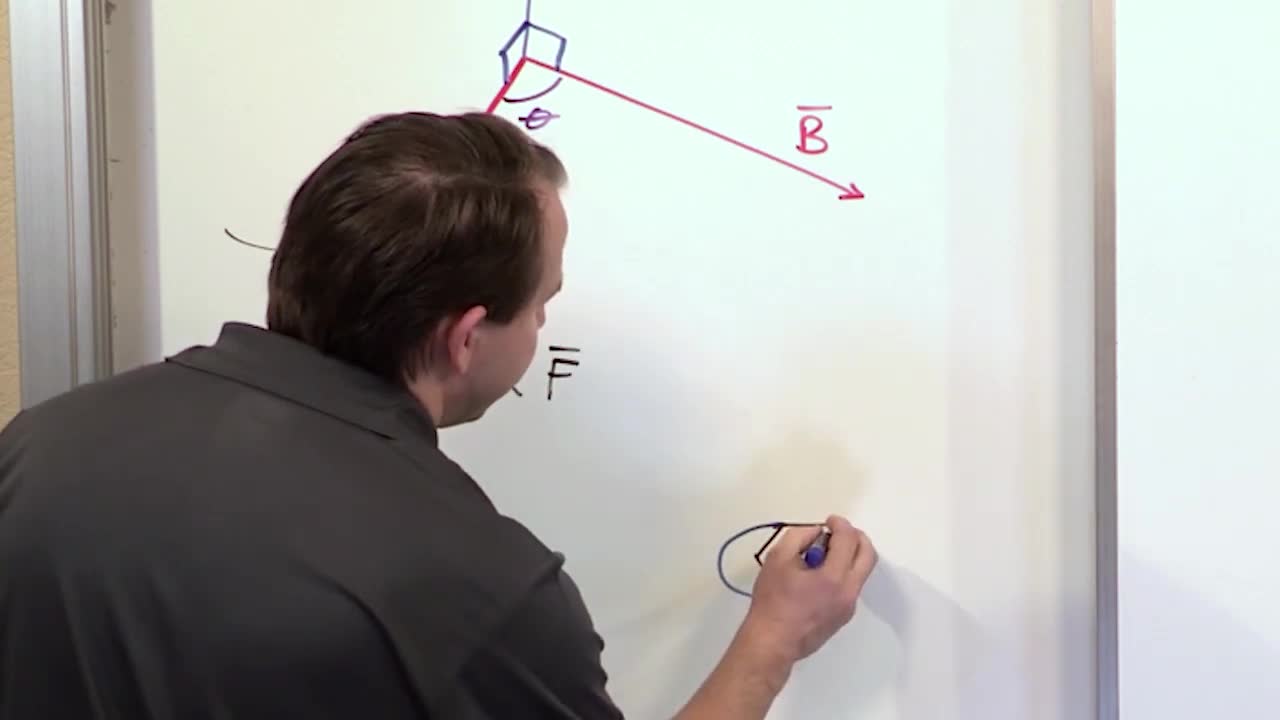 θ
B̅
F̅